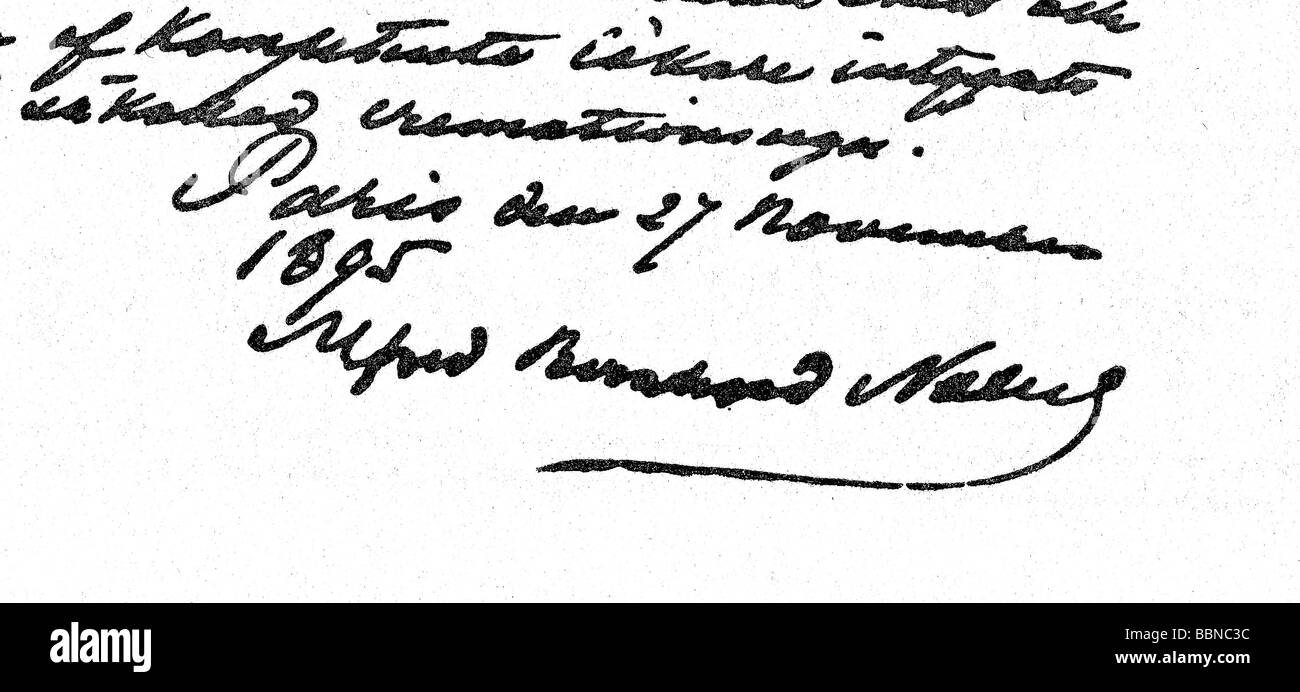 och
af kompetenta läkare intygats
så kallad cremationsugn.
Paris den 27 November
1895
Alfred Bernhard Nobel
alamy
Image ID: BBNC3C
www.alamy.com